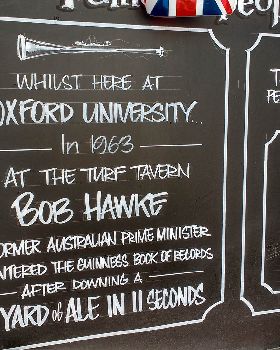 WHILST HERE AT
OXFORD UNIVERSITY...
In 1963
AT THE TURF TAVERN
BOB HAWKE
FORMER AUSTRALIAN PRIME MINISTER
ENTERED THE GUINNESS BOOK OF RECORDS
AFTER DOWNING A
YARD of ALE IN 11 SECONDS